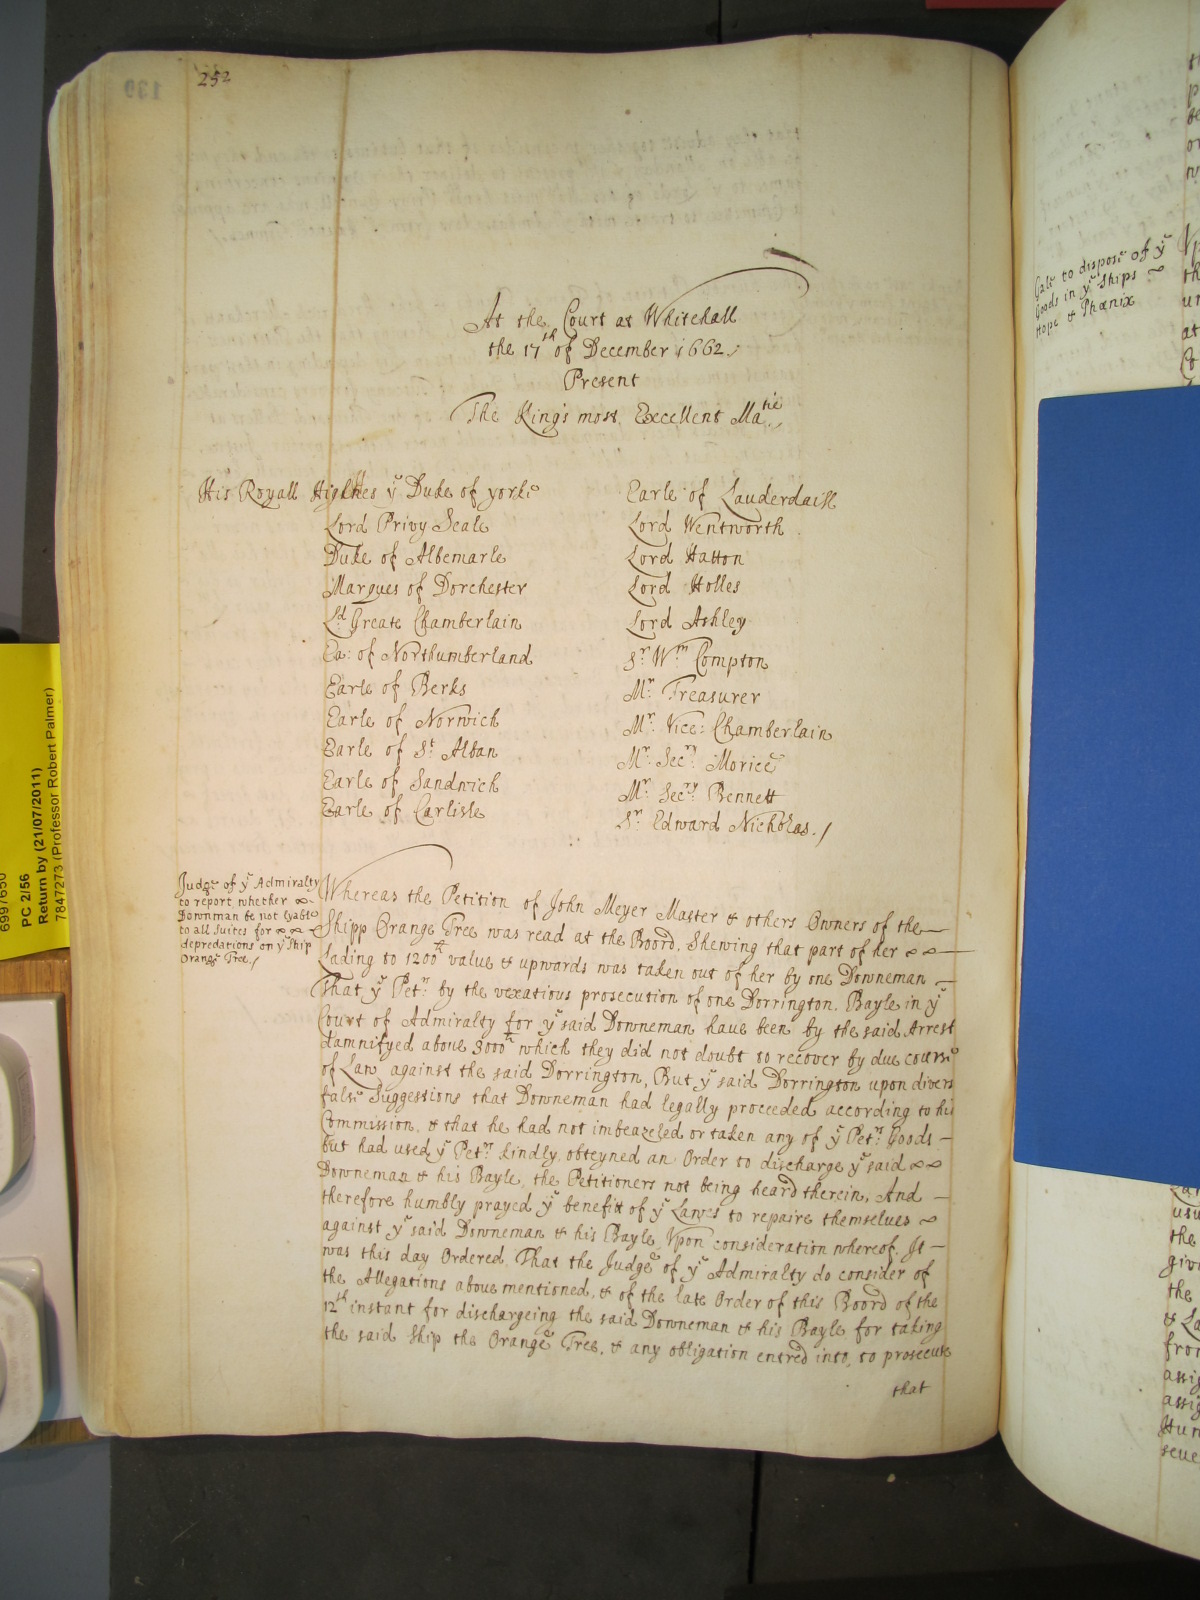 252
At the Court at Whitehall
the 17th of December 1662
Present
The King's most Excellent Ma:tie
His Royall Highnes ye Duke of yorke
Lord Privy Seale
Duke of Albemarle
Marques of Dorchester
Ld Greate Chamberlain
Ea: of Northumberland
Earle of Berks
Earle of Norwich
Earle of St: Alban
Earle of Sandwich
Earle of Carlisle
Earle of Lauderdaill
Lord Wentworth
Lord Hatton
Lord Holles
Lord Ashley
Sr: Wm Compton
Mr: Treasurer
Mr: Vice: Chamberlain
Mr: Secry: Morice
Mr: Secry: Bennett
Sr: Edward Nicholas./
Judge of ye Admiralty
to report whether
Downman be not lyable
to all suites for
depredations on ye ship
Orange Tree./
Whereas the Petition of John Meyer Master & others Owners of the
Shipp Orange Tree was read at the Boord, Shewing that part of her
Lading to 1200ll value & upwards was taken out of her by one Downeman
That ye Petrs: by the vexatious prosecution of one Dorrington, Bayle in ye
Court of Admiralty for ye said Downeman haue been by the said Arrest
damnifyed aboue 3000ll which they did not doubt to recover by due course
of Law against the said Dorrington, But ye said Dorrington upon divers
false Suggestions that Downeman had legally proceeded according to his
Commission, & that he had not imbeazeled or taken any of ye Petrs: Goods
but had used ye Petrs: kindly, obteyned an Order to discharge ye said
Downeman & his Bayle, the Petitioners not being heard therein, And
therefore humbly prayed ye benefitt of ye Lawes to repaire themselues
against ye said Downeman & his Bayle, Vpon consideration whereof, It
was this day Ordered, That the Judge of ye Admiralty do consider of
the Allegations aboue mentioned, & of the late Order of this Boord of the
12th instant for dischargeing the said Downeman & his Bayle for taking
the said Ship the Orange Tree, & any obligation entred into, to prosecute
that
Gale to dispose of ye
Goods in ye Ships
Hope & Phœnix
6997650
PC 2/56
Return by (21/07/2011)
7847273 (Professor Robert Palmer)